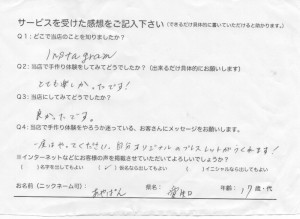 サービスを受けた感想をご記入下さい（できるだけ具体的に書いていただけると助かります。）
Q1：どこで当店のことを知りましたか？
Instagram
Q2：当店で手作り体験をしてみてどうでしたか？（出来るだけ具体的にお願いします）
とても楽しかったです！
Q3：当店にしてみてどうでしたか？
良かったです。
Q4：当店で手作り体験をやろうか迷っている、お客さんにメッセージをお願いします。
一度はやってください、自分オリジナルのブレスレットがつくれます！
※インターネットなどにお客様の声を掲載させていただいてよろしいでしょうか？
（　）名字を出してもよい　（✓）仮名なら出してもよい　（　）イニシャルなら出してもよい
お名前（ニックネーム可）：あやぱん　県名：　年齢：17歳・代